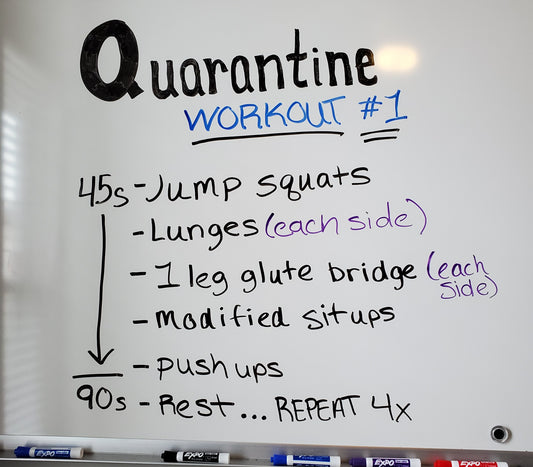 Quarantine
WORKOUT #1
45s - Jump squats
- Lunges (each side)
- 1 leg glute bridge (each
side)
- Modified situps
- push ups
90s - Rest... REPEAT 4x
EXPO EXPO EXPO EXPO EXPO